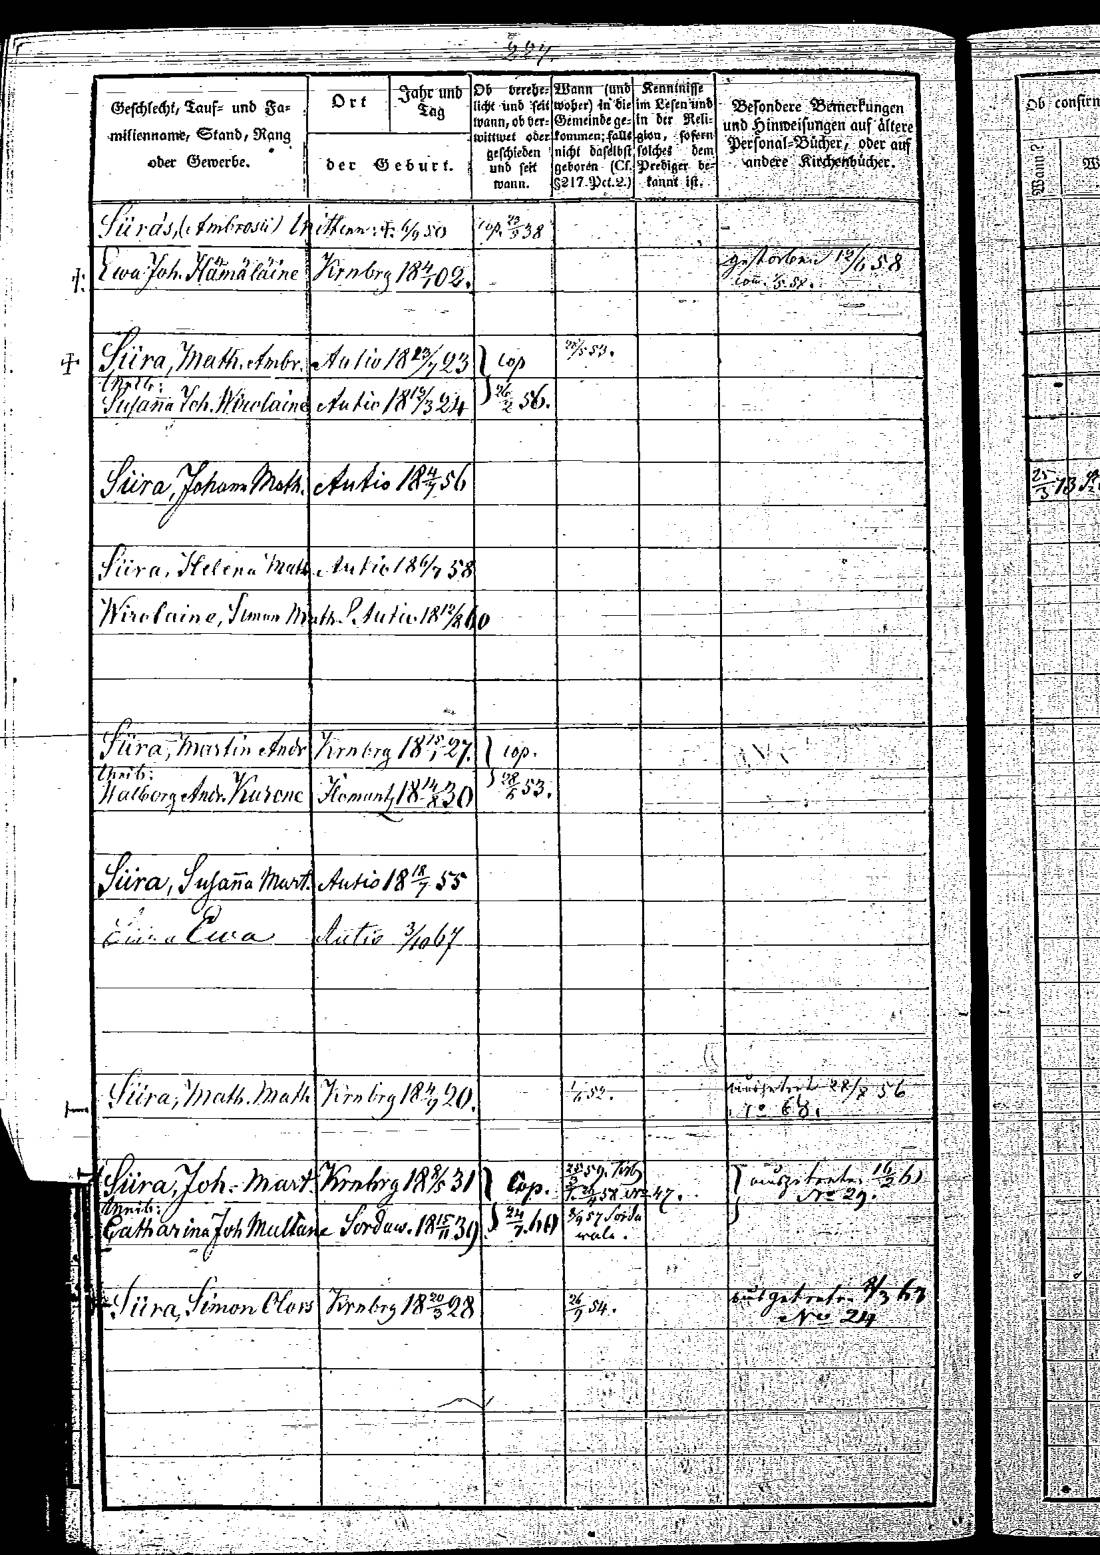 227.
Geschlecht, Tauf- und Fa-
milienname, Stand, Rang
oder Gewerbe.
Ort
Jahr und
Tag
der Geburt.
Ob verehe-
licht und seit
wann, ob ver-
wittwet oder
geschieden
und seit
wann.
Wann (und
woher) in die
Gemeinde ge-
kommen; falls
nicht daselbst
geboren (Cf.
§217. Pct. 2.)
Kenntnisse
im Lesen und
in der Reli-
gion, sofern
solches dem
Prediger be-
kannt ist.
Besondere Bemerkungen
und Hinweisungen auf ältere
Personal-Bücher, oder auf
andere Kirchenbücher.
Ob confirm
Wann?
Siira's, (Ambrosii) 50 cop. 38
Ewa Joh. Hämäläine Krnbrg 18 4/1 02. gestorben 12/6 58
Siira, Math. Ambr. Autio 18 23/7 23 cop 53.
Weib:
Susaña Joh. Wirolaine Autio 18 12/3 24 26/2 56.
Siira, Johann Math. Autio 18 4/7 56
25/3 13
Siira, Helena Math Autio 18 6/7 58
Wirolaine, Simon Math. Autio 18 12/8 60
Siira, Martin Andr Krnbrg 18 15/1 27. cop.
Weib:
Walborg Andr. Kurone Ilomantz 18 14/8 30 28/6 53.
Siira, Susaña Mart. Autio 18 18/7 55
Siira Ewa Autio 3/10 67
Siira, Math. Math Krnbrg 18 4/9 20. 1/6 52. 28/8 56
No 68.
Siira, Joh. Mart Krnbrg 18 8/5 31 Cop. 59. 58 No 47. ausgetreten 16/2 61
No 29.
Weib:
Catharina Joh Multane Sordaw. 18 15/11 39 24/7 60 8/9 57 Sorda
wala.
Siira, Simon Olofs Krnbrg 18 20/3 28 26/9 54. ausgetreten 8/3 63
No 24